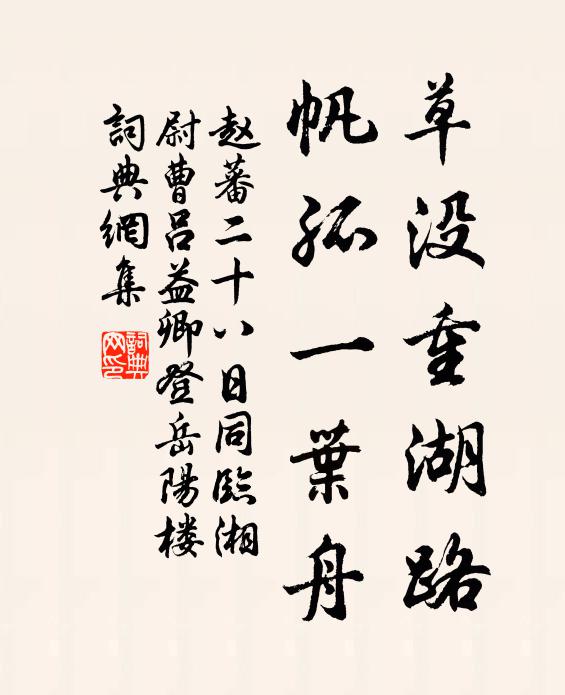 草没重湖路
帆孤一葉舟
赵蕃二十八日同臨湘
尉曹吕益卿登岳陽楼
詞典網集
詞典
网印